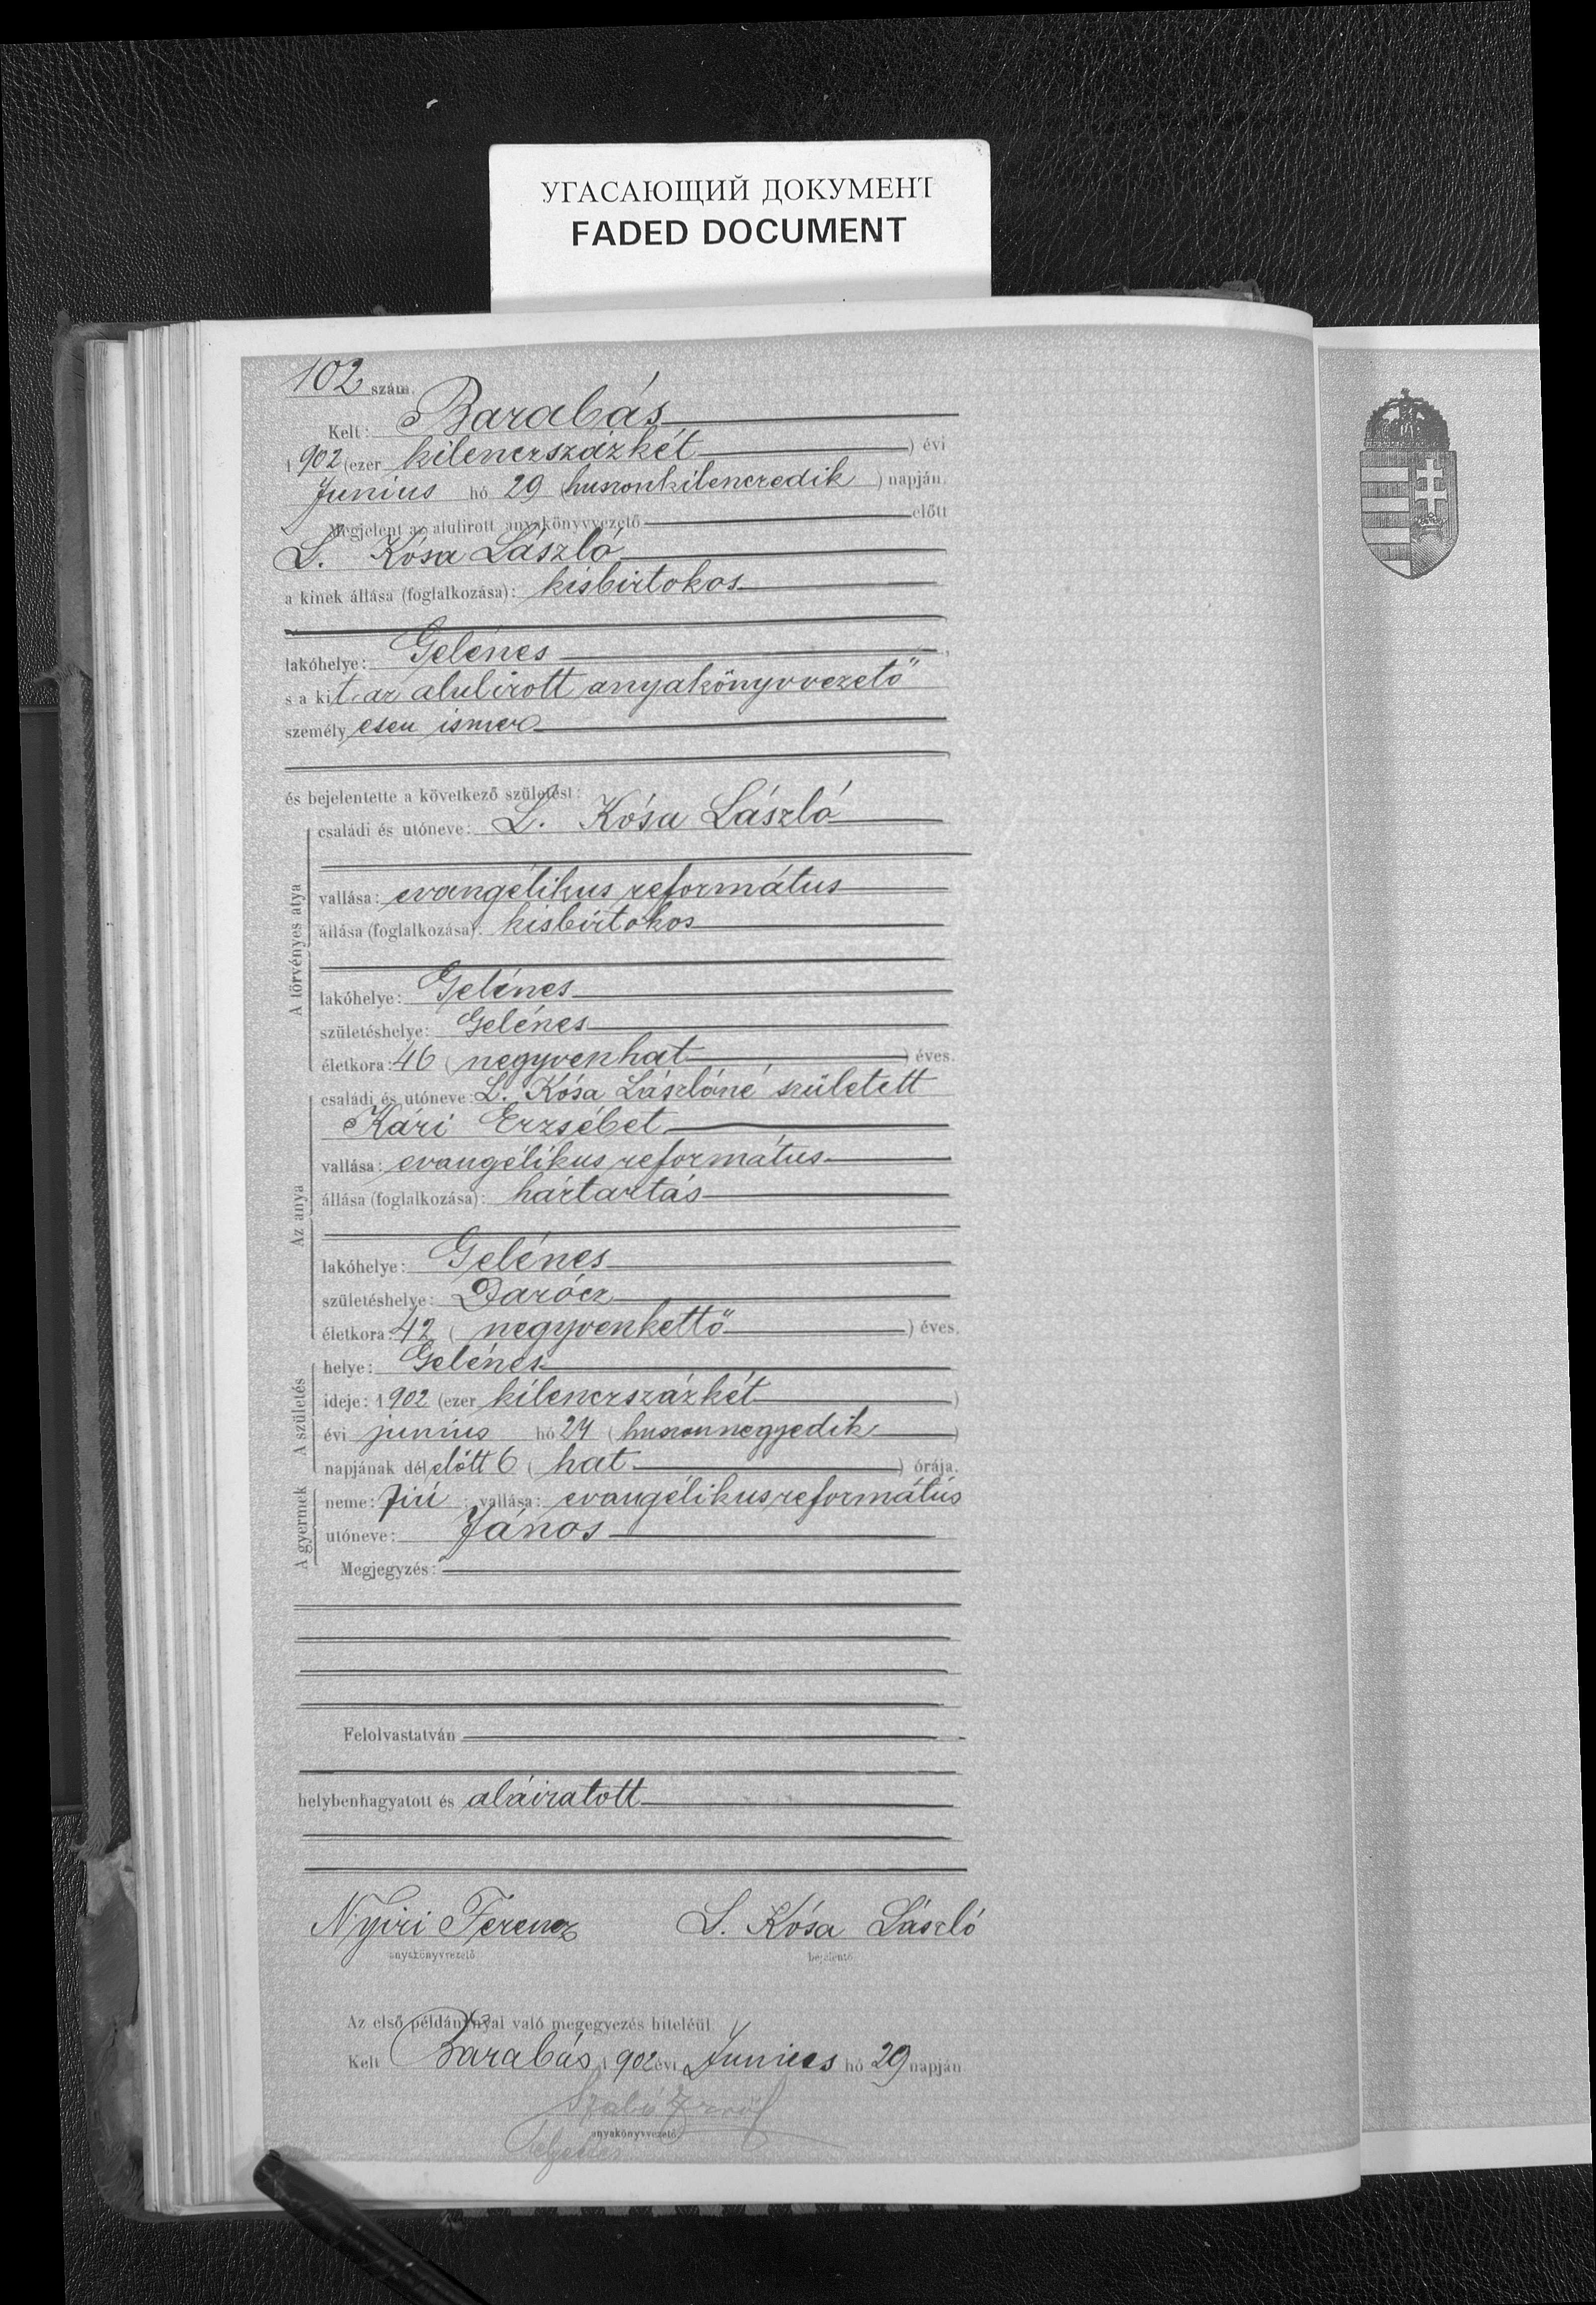 УГАСАЮЩИЙ ДОКУМЕНТ
FADED DOCUMENT
102 szám.
Kelt: Barabás
1902 (ezer kilenczszázkét ) évi
Junius hó 29 (huszonkilenczedik ) napján.
Megjelent az alulirott anyakönyvvezető előtt
L. Kósa László
a kinek állása (foglalkozása): kisbirtokos
lakóhelye: Gelénes ,
s a kit az alulirott anyakönyvvezető
személyesen ismer
és bejelentette a következő születést:
A törvényes atya
családi és utóneve: L. Kósa László
vallása: evangélikus református
állása (foglalkozása): kisbirtokos
lakóhelye: Gelénes
születéshelye: Gelénes
életkora: 46 (negyvenhat ) éves.
Az anya
családi és utóneve: L. Kósa Lászlóné született
Kári Erzsébet
vallása: evangélikus református
állása (foglalkozása): háztartás
lakóhelye: Gelénes
születéshelye: Darócz
életkora: 42 (negyvenkettő ) éves.
A születés
helye: Gelénes
ideje: 1902 (ezer kilenczszázkét )
évi junius hó 24 (huszonnegyedik )
napjának délelőtt 6 (hat ) órája.
A gyermek
neme: fiú ; vallása: evangélikus református
utóneve: János
Megjegyzés:
Felolvastatván
helybenhagyatott és aláiratott
Nyiri Ferencz L. Kósa László
anyakönyvvezető bejelentő
Az első példánynyal való megegyezés hiteléül.
Kelt Barabás, 1902 évi Junius hó 29 napján
Szabó
anyakönyvvezető